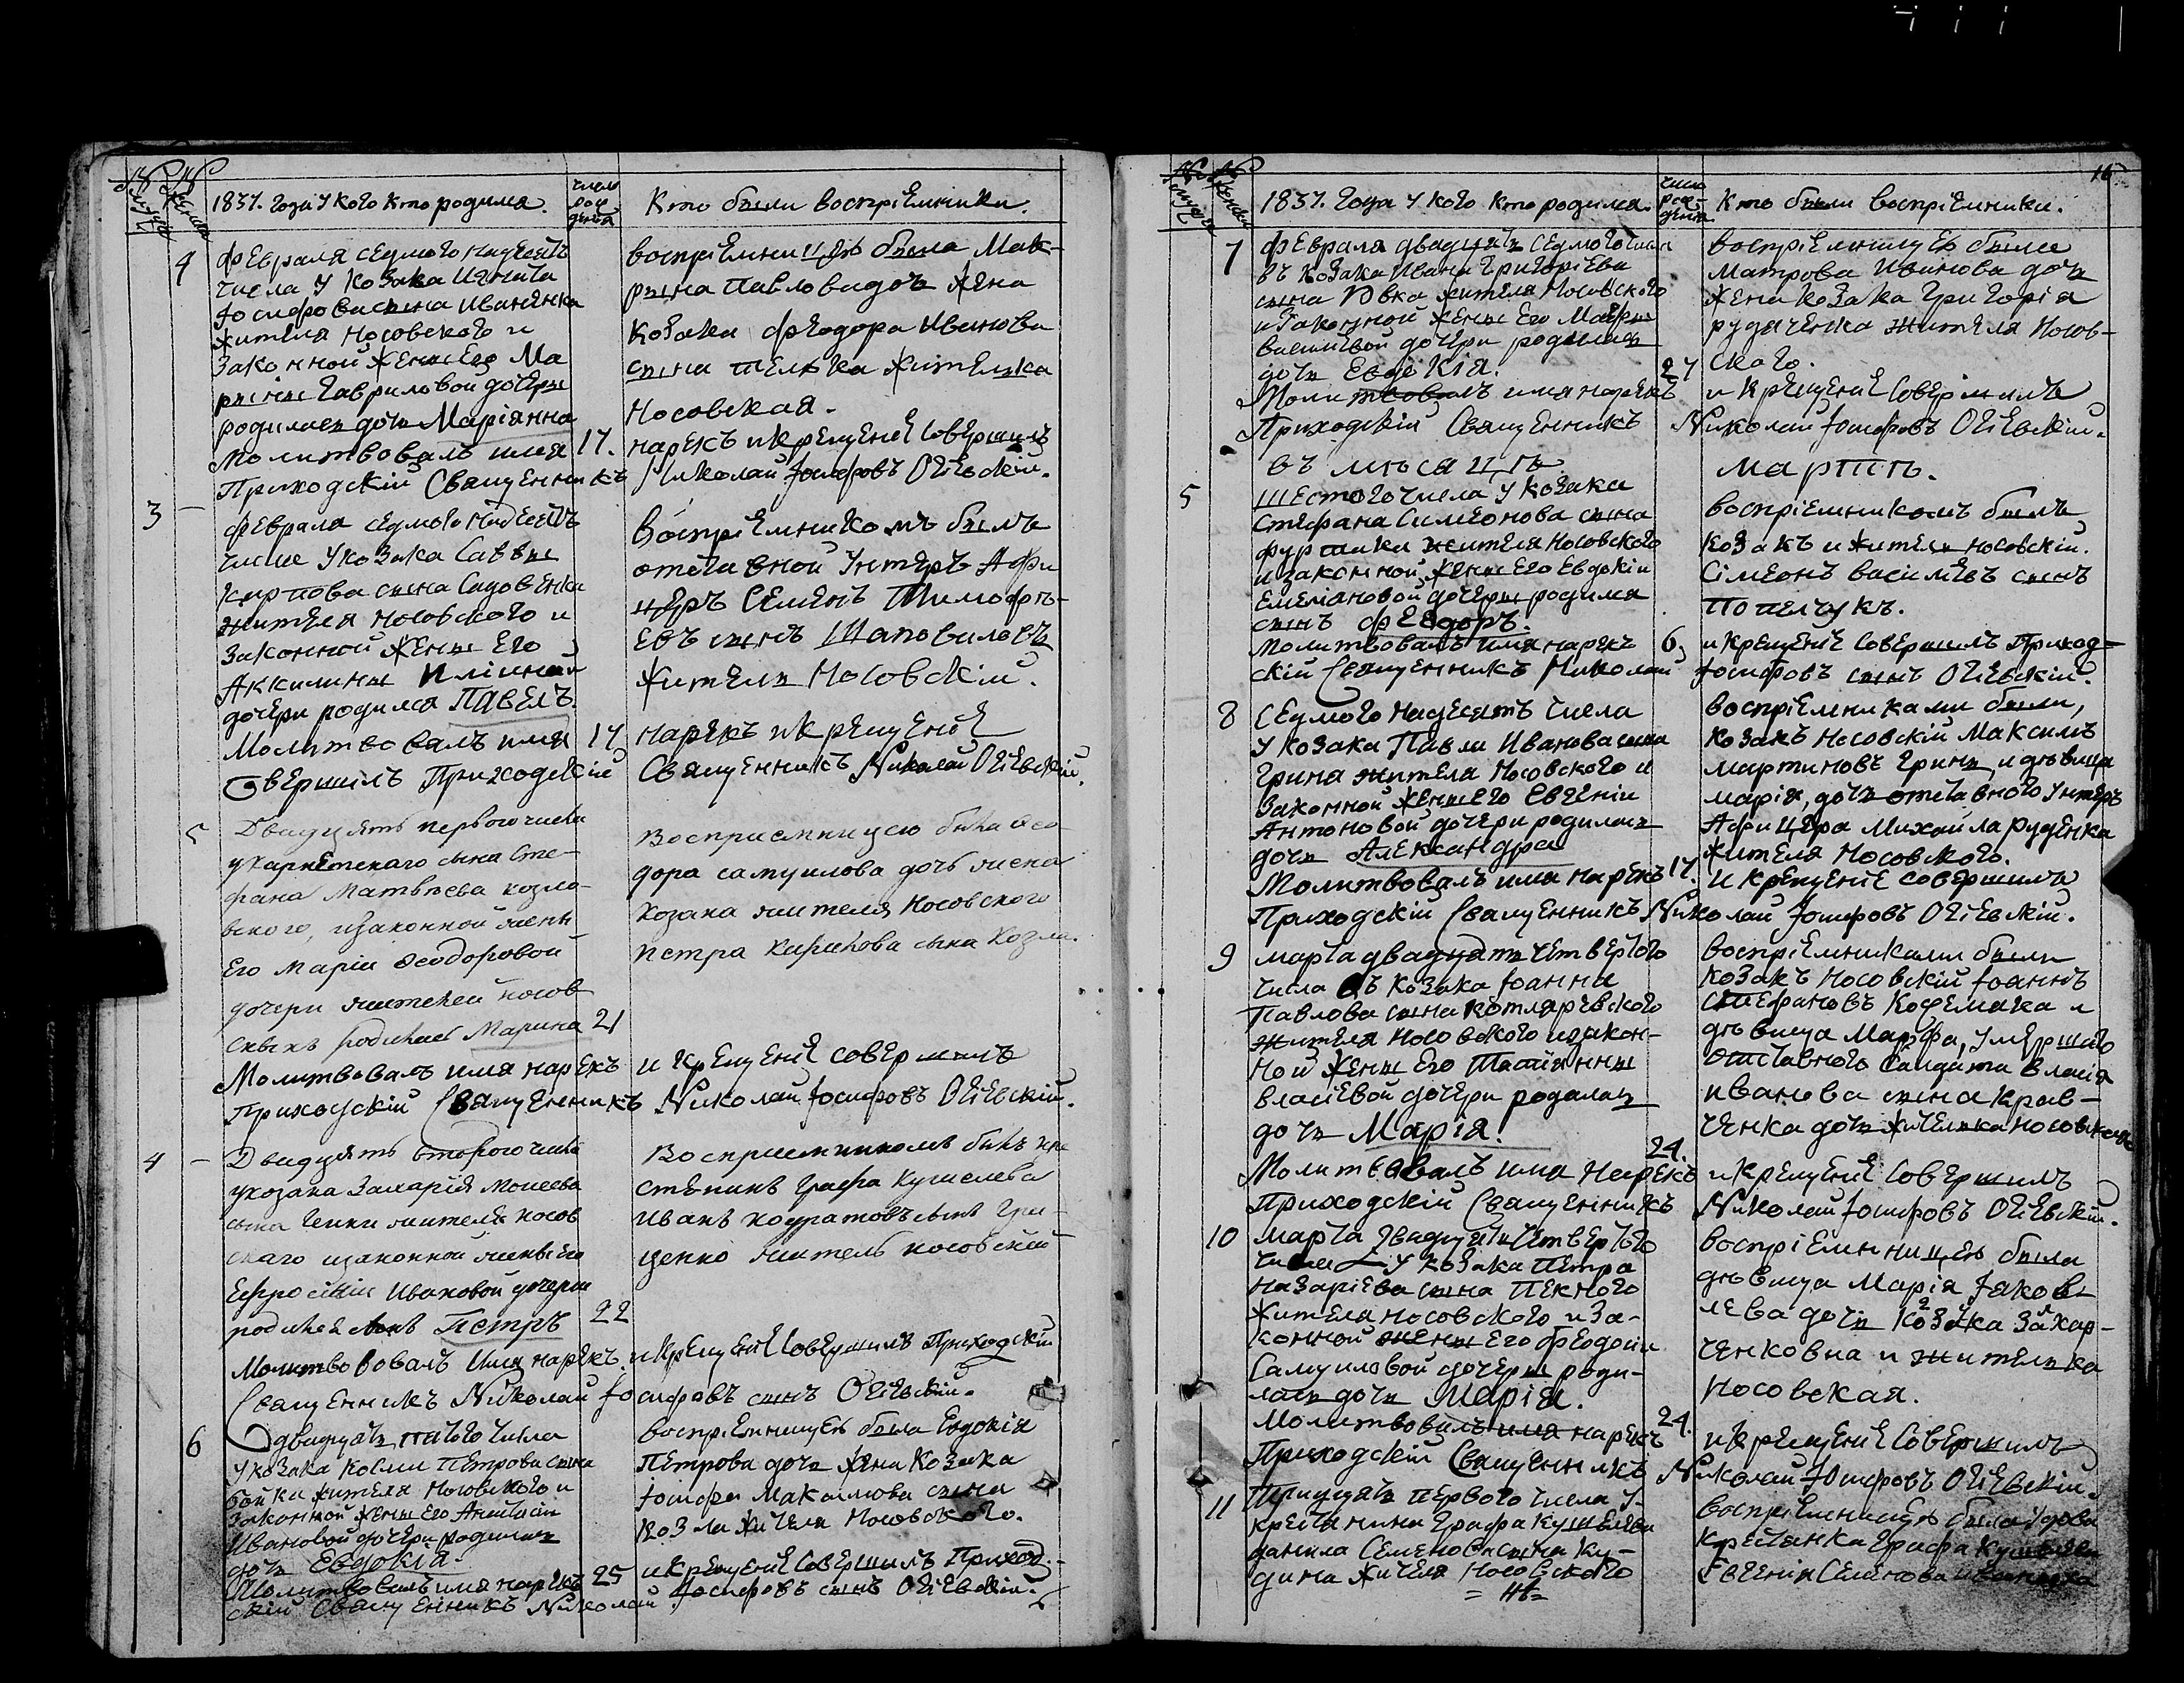 1837. Года У кого кто родился.
число рождения
Кто были восприемники.
4
февраля седмого надесять
числа У козака Игната
Іосифова сына Иваненка
жителя носовского и
законной жены его Ма
рыны Гавриловой дочеры
родилась дочь Маріянна
17.
Молитвовалъ имя
Приходскій Священникъ
воспріемницею была Мак-
рына Павлова дочь жена
козака феодора Иванова
сына жителка
Носовская.
нарекъ и крещеніе совершилъ
Николай Іосифовъ
3
февраля седмого надесять
числа У козака Саввы
Карпова сына Садовенка
жителя носовского и
законной жены его
Аккилины Иліиной
дочери родился Павелъ.
17
Молитвовалъ имя
Совершилъ Приходскій
Воспріемникомъ былъ
отставной Унтеръ Афи
церъ Семенъ Тимофѣ-
евъ сынъ Шаповаловъ
житель Носовскій.
нарекъ и крещеніе
Священникъ Николай
5
Двадцять первого числа
сына Сте-
фана Матвѣева козло-
вского, изаконной жены
Его Маріи Ѳеодоровой
дочери жителей носов
скихъ родилась Марина
21
Молитвовалъ имя нарекъ
приходскій Священникъ
Восприемницею была Ѳео
дора самуилова дочь жена
козака жителя Носовского
петра Кирилова сына Козла.
и крещеніе совершилъ
Николай Іосифовъ
4
Двадцять второго числа
укозака Захарія Моисеева
сына жителя носов
скаго изаконной жены его
Ефросиніи Ивановой дочери
родился сынъ Петръ
22
Молитвовалъ Имя нарекъ
Священникъ Николай Іо
Восприемникомъ былъ кре
стянинъ Графа Кушелева
Иванъ сынъ Гри-
ценко житель носовский
и крещеніе совершилъ Приходскій
сифовъ сынъ
6
двадцать пятого числа
У козака Косми Петрова сына
бойка жителя Носовского и
законной жены его Анастасіи
Ивановой дочери родилась
дочь Евдокія.
25
Молитвовалъ имя нарекъ
скій Священникъ Николай
воспріемницею была Евдокія
Петрова дочь жена Козака
Іосифа Максимова сына
Козла жителя Носовского.
и крещеніе совершилъ Приход-
Іосифовъ сынъ
16
1837. Года У кого кто родился.
число рождения
Кто были воспріемники.
7
февраля двадцать седмого числа
въ козака Ивана Григоріева
сына Вовка жителя Носовского
и законной жены его Марфы
дочери родилась
дочь Евдокія.
27
Молитвовалъ имя нарекъ
Приходскій Священникъ
воспріемницею была
Матрона Иванова дочь
жена козака Григорія
рудяченка жителя Носов-
ского.
и крещеніе совершилъ
Николай Іосифовъ
въ мѣсяцѣ
мартѣ.
5
Шестого числа У козака
Стефана Симеонова сына
жителя носовского
и законной жены его Евдокіи
Емеліановой дочеры родился
сынъ феодоръ.
6
Молитвовалъ имя нарекъ
скій Священникъ Николай
воспріемникомъ былъ
козакъ и житель носовскій.
Сімеонъ василіевъ сынъ
и крещеніе совершилъ Приход-
Іосифовъ сынъ
8
Седмого надесять числа
У козака Павла Иванова сына
Грина жителя Носовского и
законной жены его Евгеніи
Антоновой дочери родилась
дочь Александра
17.
Молитвовалъ имя нарекъ
Приходскій Священникъ
воспріемниками были,
козакъ носовскій Максимъ
мартиновъ Гринь, и дѣвица
марія, дочь отставного унтеръ
Афицера Михайла Руденка
жителя Носовского.
и крещеніе совершилъ
Николай Іосифовъ
9
марта двадцать четвертого
числа въ козака Іоанна
Павлова сына котляревского
жителя носовского и закон-
ной жены его Татіянны
власіевой дочери родилась
дочь Марія.
24.
Молитвовалъ имя нарекъ
Приходскій Священникъ
воспріемниками были
козакъ носовскій Іоаннъ
стефановъ и
дѣвица Марфа, умершаго
отставного Салдата власія
иванова сына крав-
ченка дочь жителка носовская
и крещеніе совершилъ
Николай Іосифовъ
10
марта двадцать четвертого
числа У козака петра
назаріева сына Пекного
жителя носовского и за-
конной жены его феодосіи
Самуиловой дочеры роди-
лась дочь Марія.
24.
Молитвовалъ имя нарекъ
Приходскій Священникъ
воспріемницею была
дѣвица Марія Іаков-
лева дочь козака захар-
ченковна и жителька
носовская.
и крещеніе совершилъ
Николай Іосифовъ
11
Тридцать первого числа У
крестянина Графа Кушелева
данила Семенова сына Ку-
дина жителя носовского
воспріемницею была вдова
крестянка Графа Кушелева
Евгенія Семенова